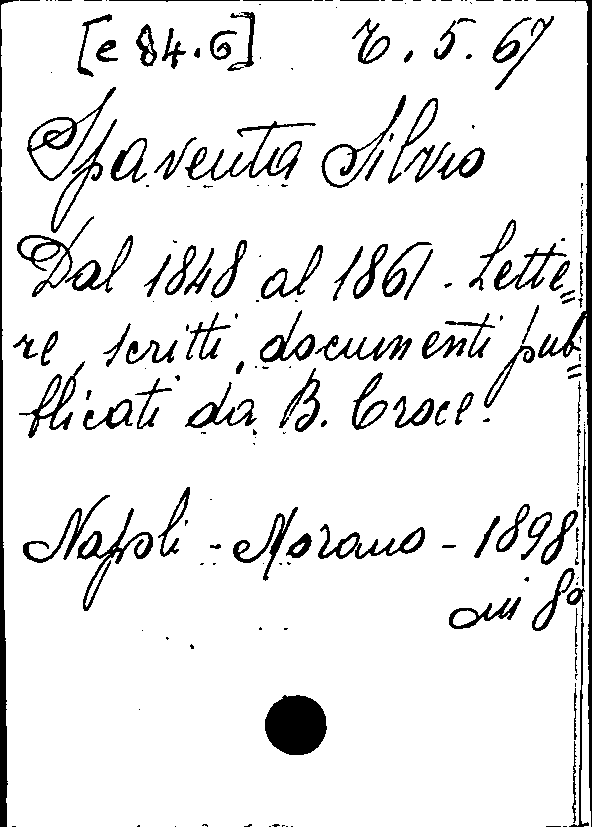 [e 84.6] 7. 5. 67
Spaventa Silvio
Dal 1848 al 1861. Lette=
re, scritti, documenti pub=
blicati da B. Croce.
Napoli - Morano - 1898
in 8°